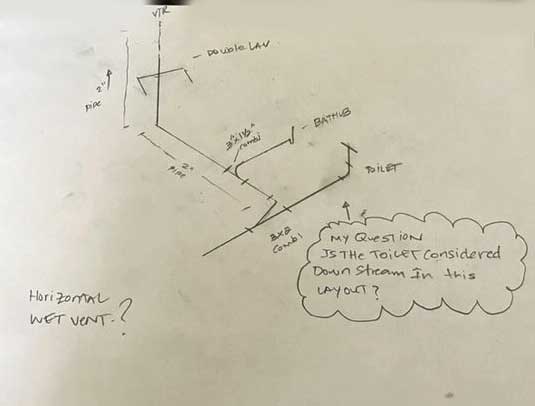 VTR
- DOUBLE LAV
2"
PIPE
3"x1½"
combi
- BATHUB
2"
PIPE
TOILET
3x2
Combi
MY QUESTION
IS THE TOILET Considered
Down Stream In this
LAYOUT?
Horizontal
WET VENT.?